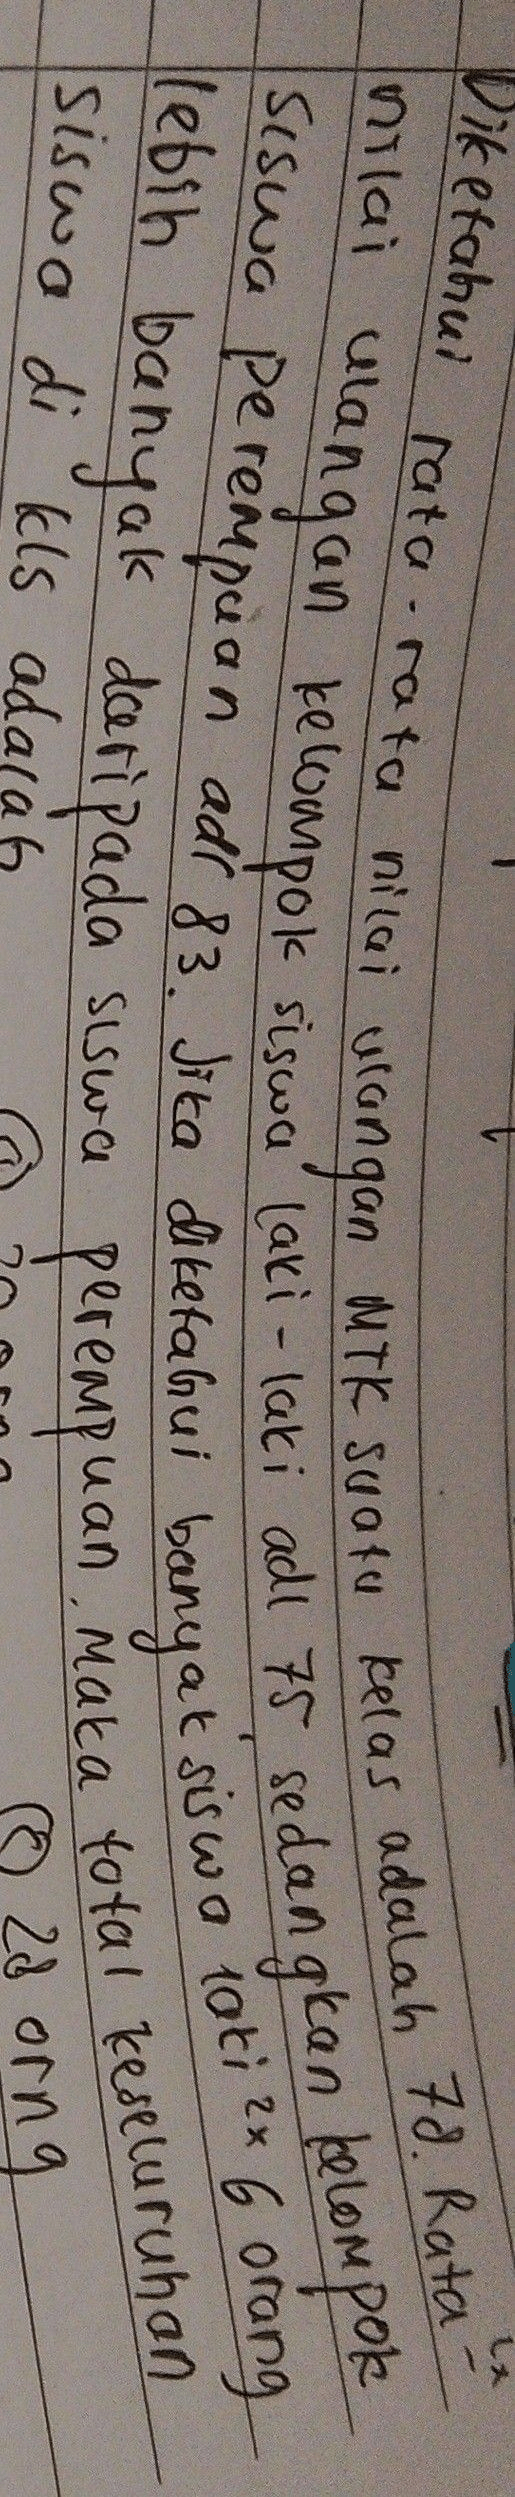 Diketahui rata-rata nilai ulangan MTK suatu kelas adalah 78. Rata-²ˣ
nilai ulangan kelompok siswa laki-laki adl 75 sedangkan kelompok
siswa perempuan adl 83. Jika diketahui banyak siswa laki²ˣ 6 orang
lebih banyak daripada siswa perempuan. Maka total keseluruhan
siswa di kls adalah